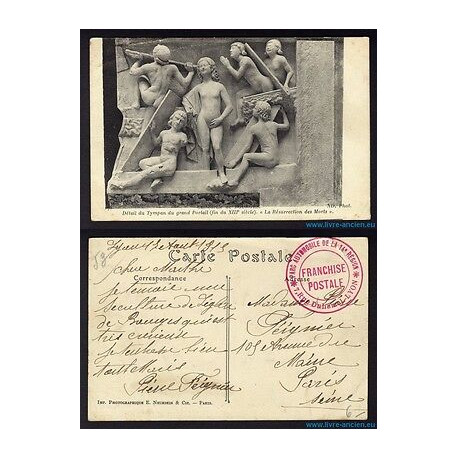 www.livre-ancien.eu
ND. Phot.
Détail du Tympan du grand Portail (fin du XIIIe siècle). « La Résurrection des Morts ».
1915
Carte Postale
Correspondance
Adresse
PARC AUTOMOBILE DE LA 14e RÉGION
FRANCHISE
POSTALE
LYON
Chère Marthe
je t'envoie une
sculpture de l'église
de Bourges qui est
très curieuse
je t'embrasse bien
Pierre Peignier
Madame
Peignier
105 Avenue du
Maine
Paris
Seine
Imp. Photographique E. Neurdein & Cie. - Paris.
www.livre-ancien.eu